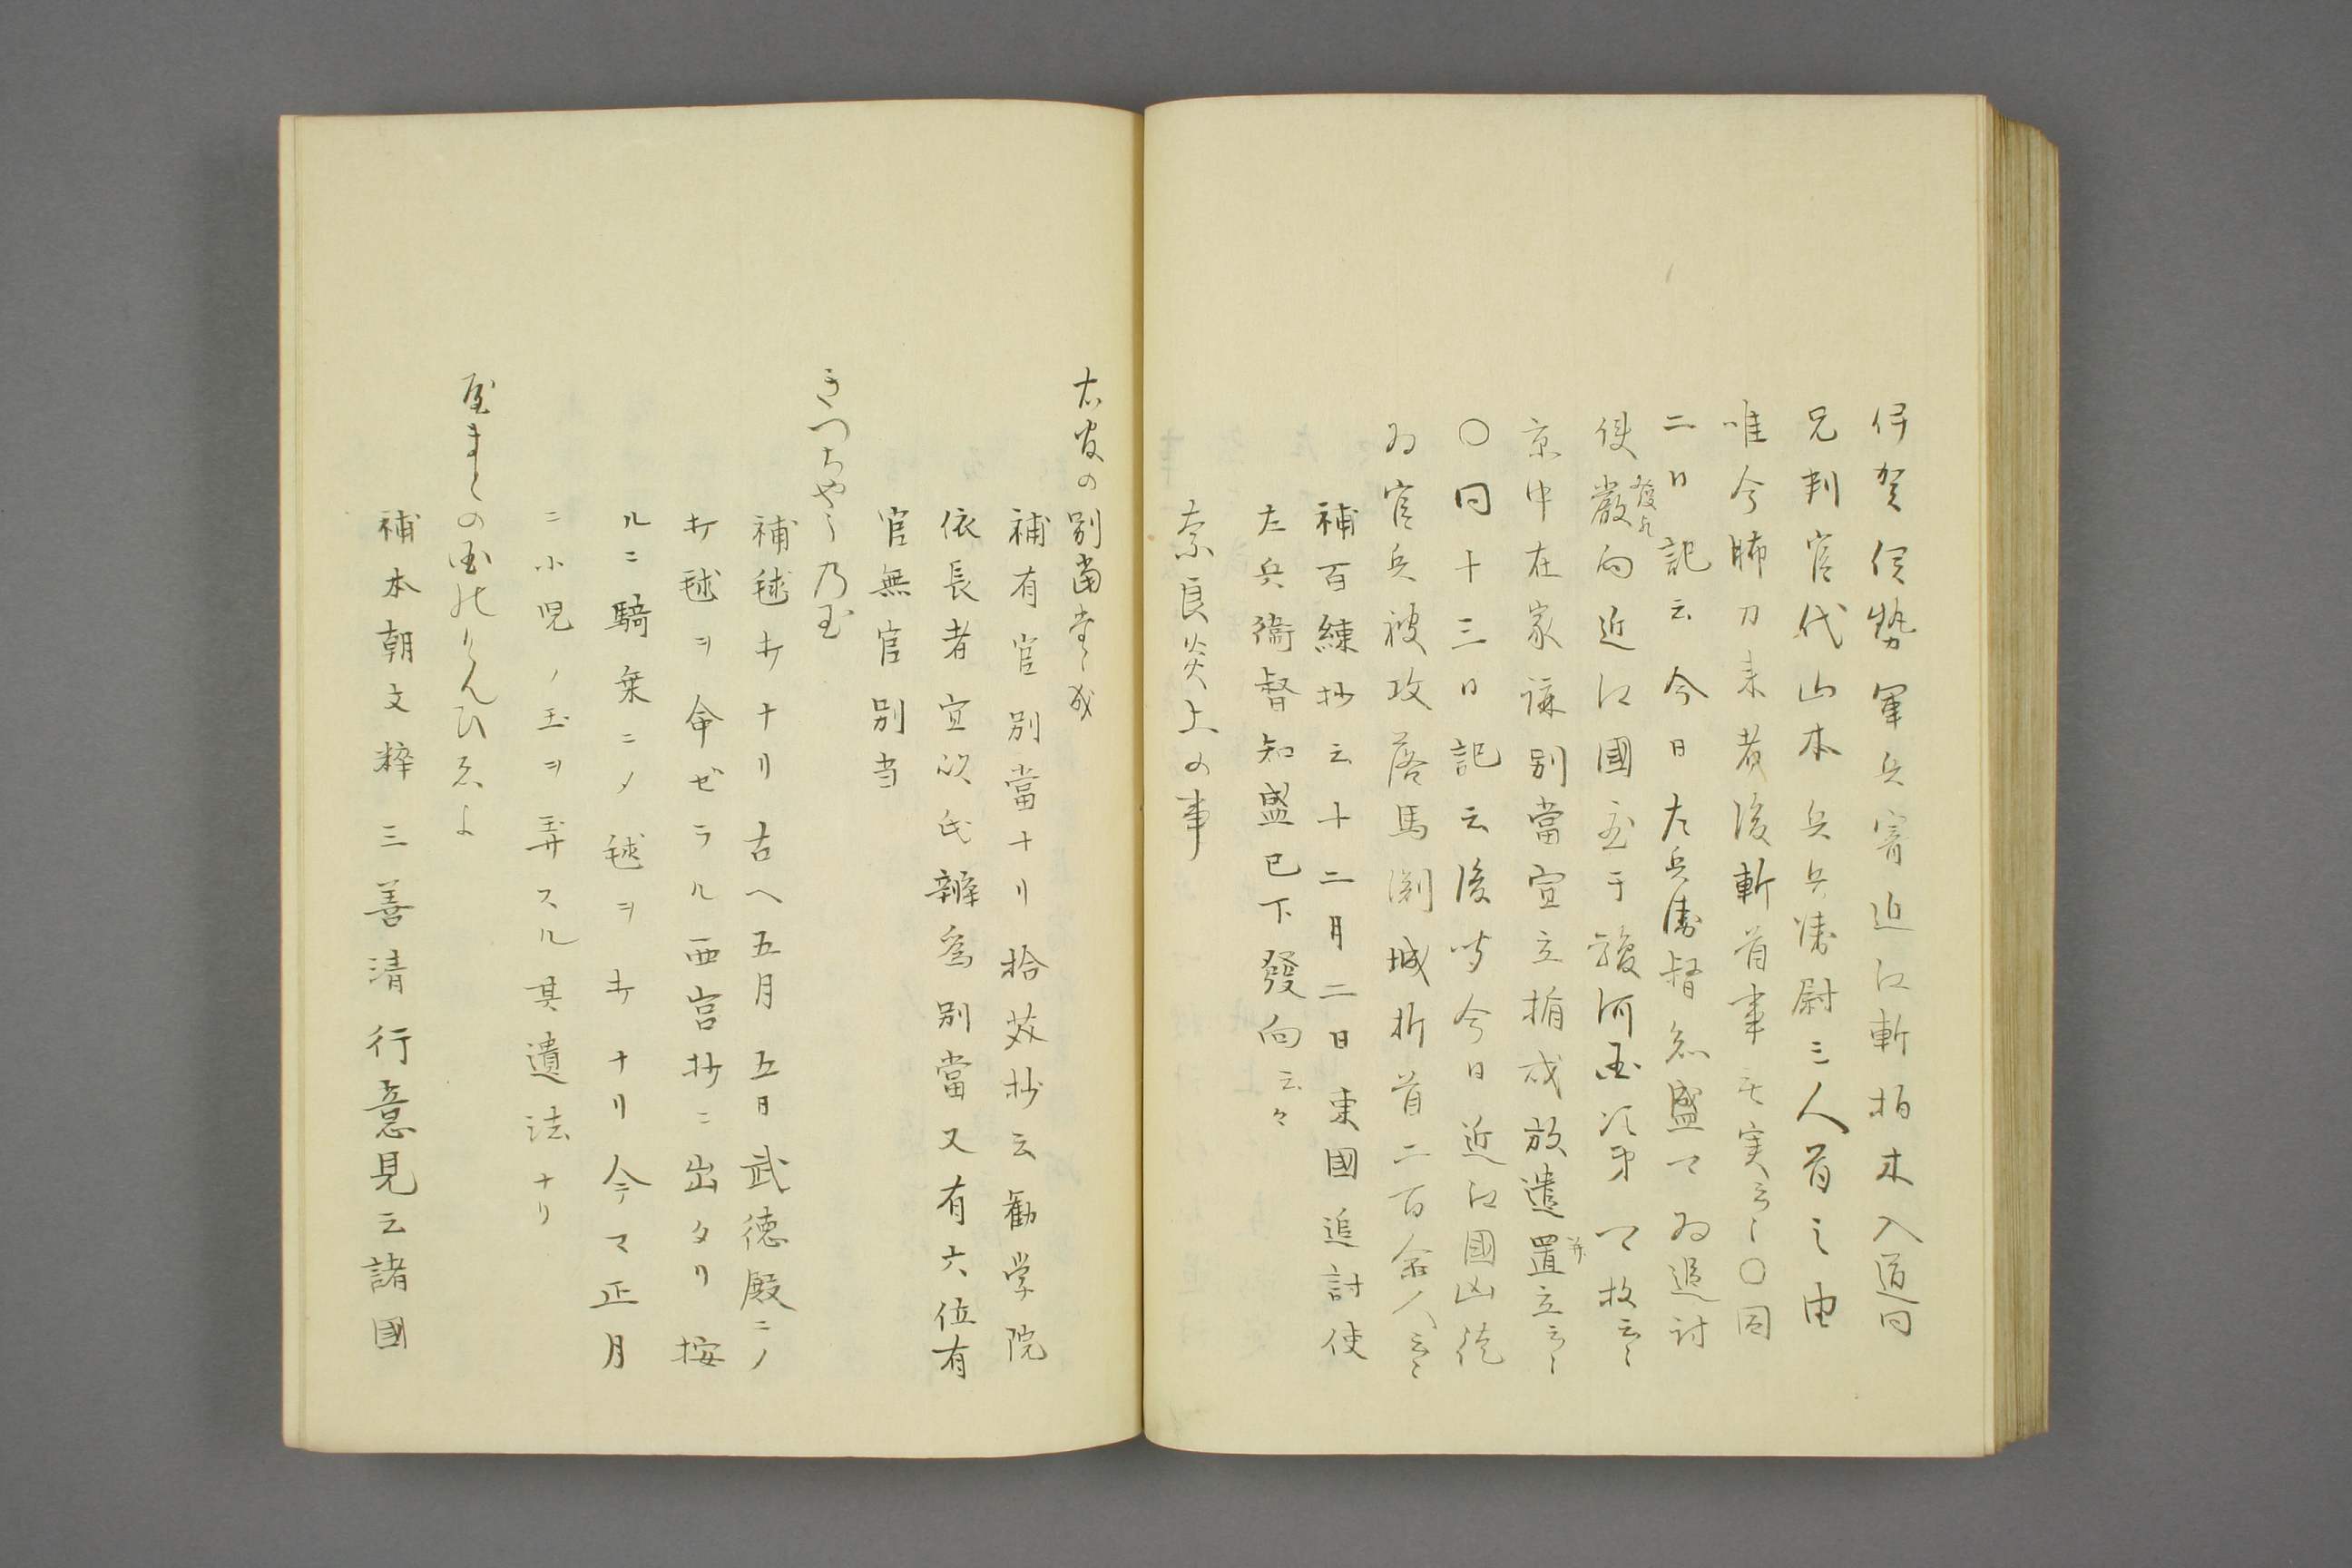 伊賀伊勢軍兵寄近江斬柏木入道同
兄判官代山本兵兵衛尉三人首之由
唯今腨刀来着後斬首事無実云々〇同
二日記云今日左兵衛督知盛下為追討
使発向近江國至于駿河国次第可攻云々
京中在家課別當宣立楯或放遣置立云々
〇同十三日記云後聞今日近江國凶徒
為官兵被攻落馬渕城折首二百余人云々
補百練抄云十二月二日東國追討使
左兵衛督知盛已下發向云々
奈良炎上の事
有官の別當
補有官別當ナリ拾芥抄云勧学院
依長者宣以氏辨為別當又有六位有
官無官別当
きつちやうの玉
補毬打ナリ古ヘ五月五日武徳殿ニノ
打毬ヲ命ゼラル西宮抄ニ出タリ按
ルニ騎乗ニノ毬ヲ打ナリ今マ正月
ニ小児ノ玉ヲ弄スル其遺法ナリ
やまとの国のけんひゐし
補本朝文粹三善清行意見云諸國